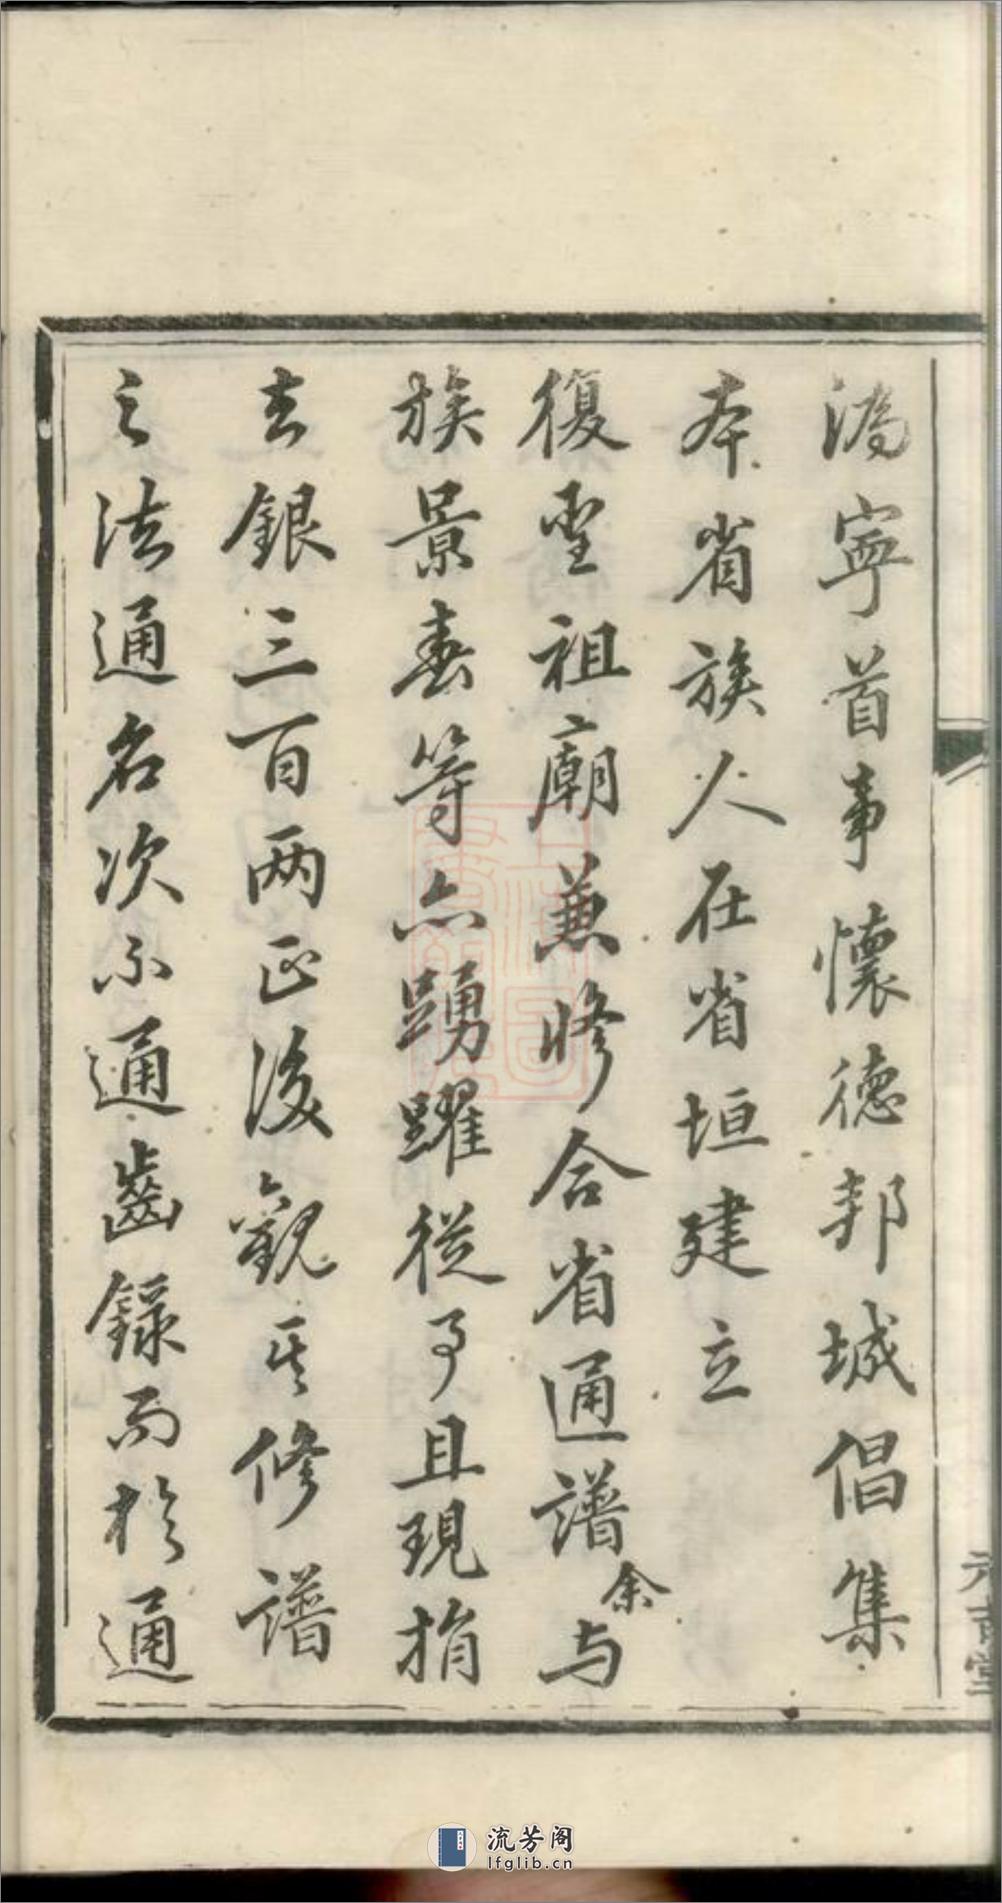 鴻寧首事懷德邦城倡集
本省族人在省垣建立
復聖祖廟兼修合省通譜余与
族景春等亦踴躍從事且現捐
去銀三百两正後觀其修譜
之法通名次不通齒錄而於通
流芳阁
lfglib.cn